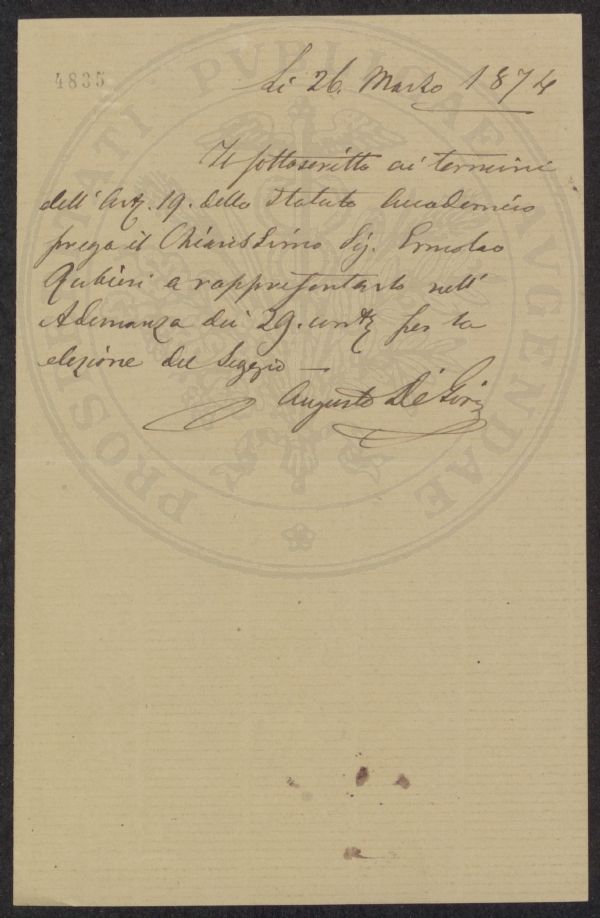 4835
Li 26. Marzo 1874
Il sottoscritto ai termini
dell' Art. 19. dello Statuto Accademico
prega il Chiarissimo Sig. Ermolao
Rubieri a rappresentarlo nell'
Adunanza dei 29. corr per la
elezione del Segrio
Augusto De Gori
PROSPERITATI PVBLICAE AVGENDAE